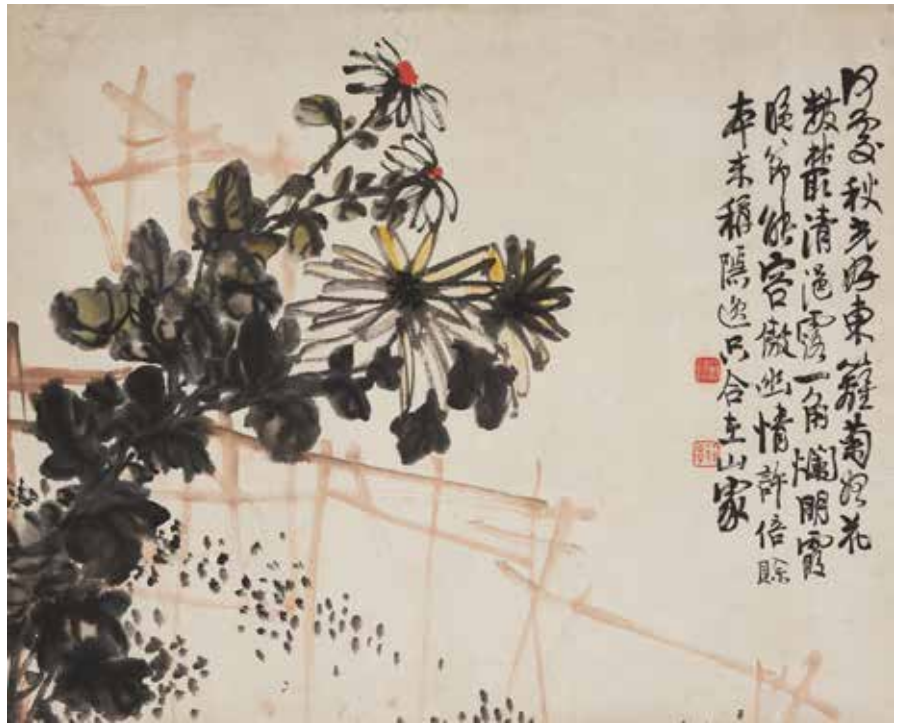 何處秋光好東籬菊始花
數叢清浥露一角爛明霞
晚節能容傲幽情許倍賒
本來稱隱逸只合在山家